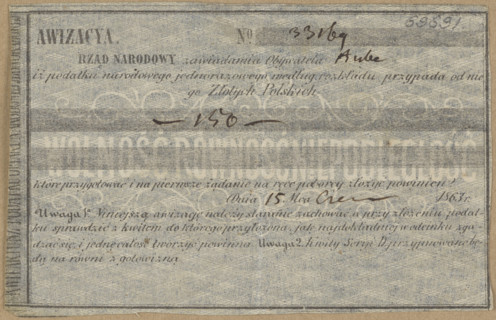 59591.
AWIZACYA. No 33169
RZĄD NARODOWY zawiadamia Obywatela Hube
iż podatku narodowego jednorazowego według rozkładu przypada od nie-
go Złotych Polskich
— 150 —
WOLNOŚĆ RÓWNOŚĆ NIEPODLEGŁOŚĆ
które przygotować i na pierwsze żądanie na ręce poborcy złożyć powinien
Dnia 15 Mca Czer 1863 r.
Uwaga 1. Niniejszą awizacyę należy starannie zachować, a przy złożeniu podat-
ku sprawdzić z kwitem do którego przyłożona, jak najdokładniej w odcinku zga-
dzać się i jedną całość tworzyć powinna. Uwaga 2. Kwity Seryi D. przyjmowane bę-
dą na równi z gotowizną.